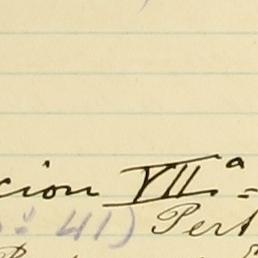 cion VII.ª =
º 41) Pert